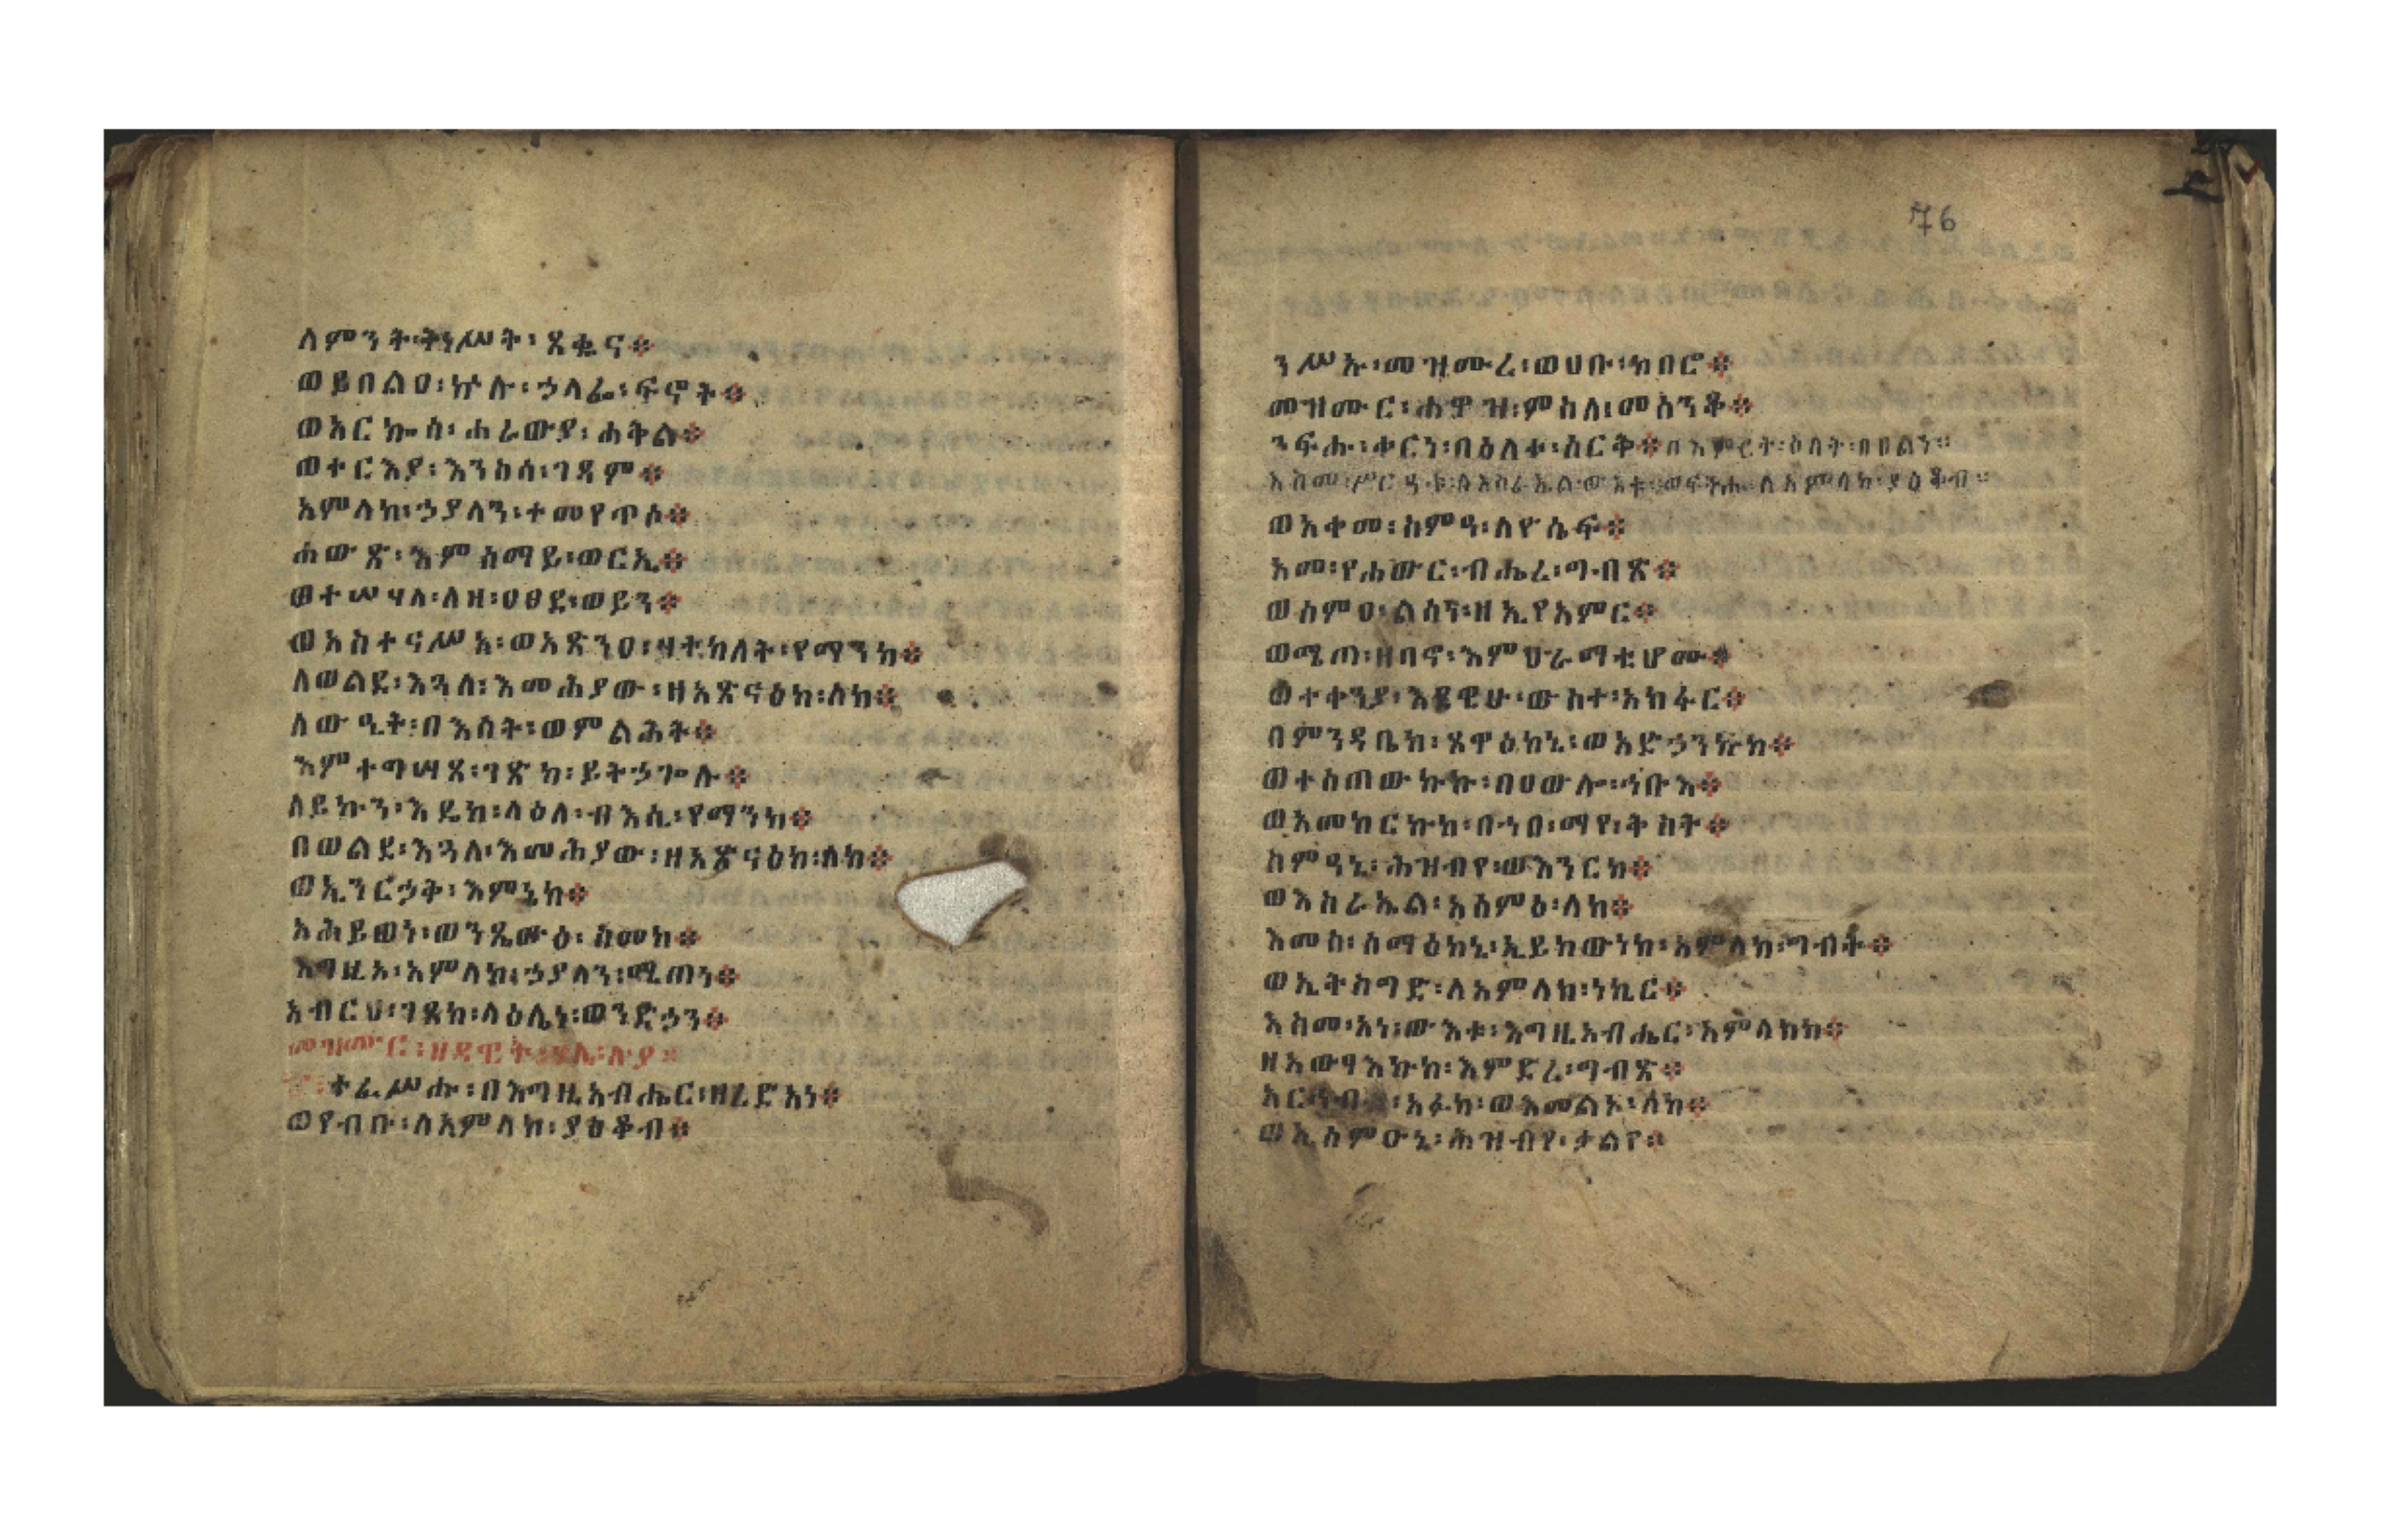 ለምንት፡ትነሥት፡ጸቈና፨
ወይበልዐ፡ኵሉ፡ኃላፌ፡ፍኖት፨
ወአርኰሰ፡ሐራውያ፡ሐቅል፨
ወተርእያ፡እንስሳ፡ገዳም፨
አምላክ፡ኃያላን፡ተመየጥሶ፨
ሐውጽ፡እምሰማይ፡ወርኢ፨
ወተሣሃላ፡ለዛ፡ዐፀደ፡ወይን፨
ወአስተናሥኣ፡ወአጽንዐ፡ዛተከለት፡የማንከ፨
ለወልደ፡እጓለ፡እመሕያው፡ዘአጽናዕከ፡ለከ፨
ለውዒት፡በእሳት፡ወምልሕት፨
እምተግሣጸ፡ገጽከ፡ይትኃጐሉ፨
ለይኩን፡እዴከ፡ላዕለ፡ብእሲ፡የማንከ፨
በወልደ፡እጓለ፡እመሕያው፡ዘአጽናዕከ፡ለከ፨
ወኢንርኃቅ፡እምኔከ፨
አሕይወነ፡ወንጼውዕ፡ስመከ፨
እግዚኦ፡አምላክ፡ኃያላን፡ሚጠነ፨
አብርህ፡ገጸከ፡ላዕሌነ፡ወንድኃን፨
መዝሙር፡ዘዳዊት፡ሃሌ፡ሉያ፨
ተፈሥሑ፡በእግዚአብሔር፡ዘረድአነ፨
ወየብቡ፡ለአምላከ፡ያዕቆብ፨
76
ንሥኡ፡መዝሙረ፡ወሀቡ፡ከበሮ፨
መዝሙር፡ሐዋዝ፡ምስለ፡መሰንቆ፨
ንፍሑ፡ቀርነ፡በዕለተ፡ሠርቅ፨በእምርት፡ዕለት፡በዓልነ፨
እስመ፡ሥርዓቱ፡ለእስራኤል፡ውእቱ፡ወፍትሑ፡ለአምላከ፡ያዕቆብ፨
ወአቀመ፡ስምዓ፡ለዮሴፍ፨
አመ፡የሐውር፡ብሔረ፡ግብጽ፨
ወሰምዐ፡ልሳነ፡ዘኢየአምር፨
ወሜጠ፡ዘባኖ፡እምህራማቲሆሙ፨
ወተቀንያ፡እደዊሁ፡ውስተ፡አክፋር፨
በምንዳቤከ፡ጸዋዕከኒ፡ወአድኃንኩከ፨
ወተሰጠውኩከ፡በዐውሎ፡ኅቡእ፨
ወአመከርኩከ፡በኀበ፡ማየ፡ቅስት፨
ስምዓኒ፡ሕዝብየ፡ወእንግርከ፨
ወእስራኤል፡አሰምዕ፡ለከ፨
እመሰ፡ሰማዕከኒ፡ኢይከውነከ፡አምላከ፡ግብት፨
ወኢትስግድ፡ለአምላክ፡ነኪር፨
እስመ፡አነ፡ውእቱ፡እግዚአብሔር፡አምላክከ፨
ዘአውፃእኩከ፡እምድረ፡ግብጽ፨
አርኅብ፡አፉከ፡ወእመልኦ፡ለከ፨
ወኢሰምዑኒ፡ሕዝብየ፡ቃልየ፨